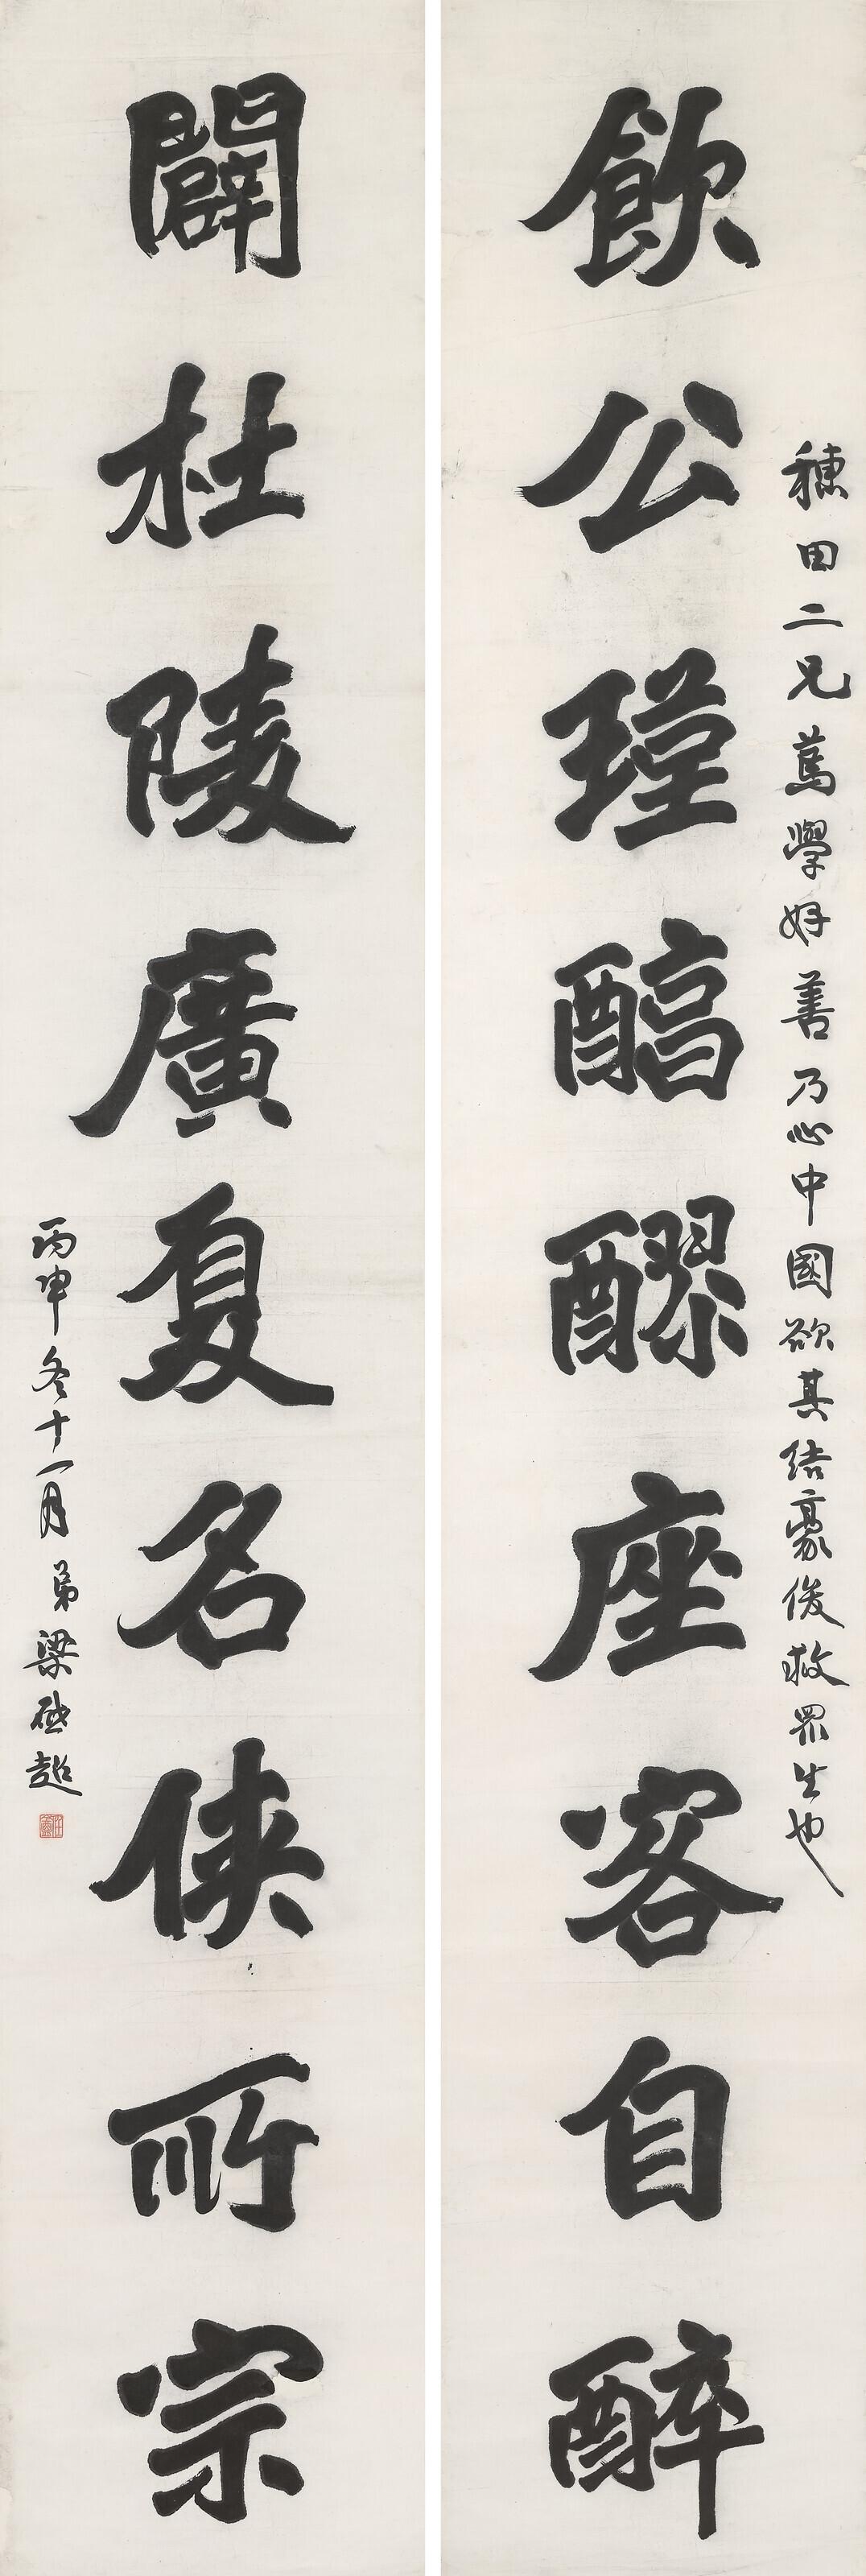 飲公瑾醕醪座客自醉
穗田二兄蔿學好善乃心中國欲其結豪俊救眾生也
闢杜陵廣夏名俠所宗
丙申冬十一月弟梁啟超